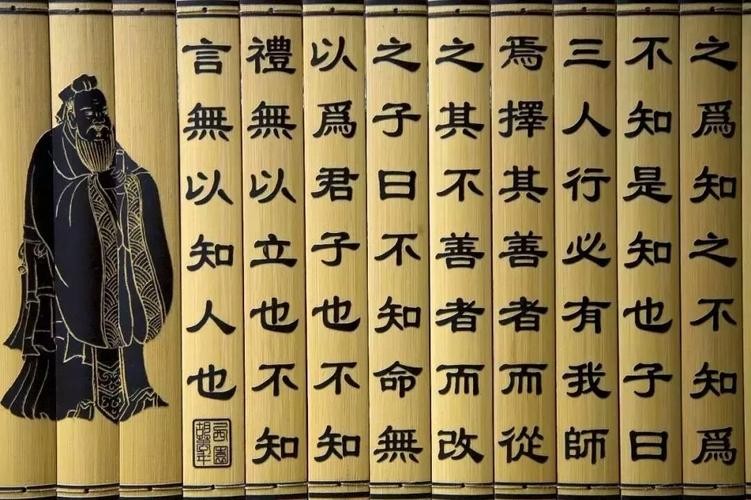 之爲知之不知爲
不知是知也子曰
三人行必有我師
焉擇其善者而從
之其不善者而改
之子曰不知命無
以爲君子也不知
禮無以立也不知
言無以知人也